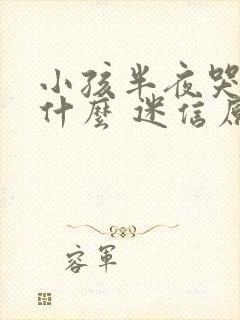 小孩半夜哭
什麼 迷信原
容軍